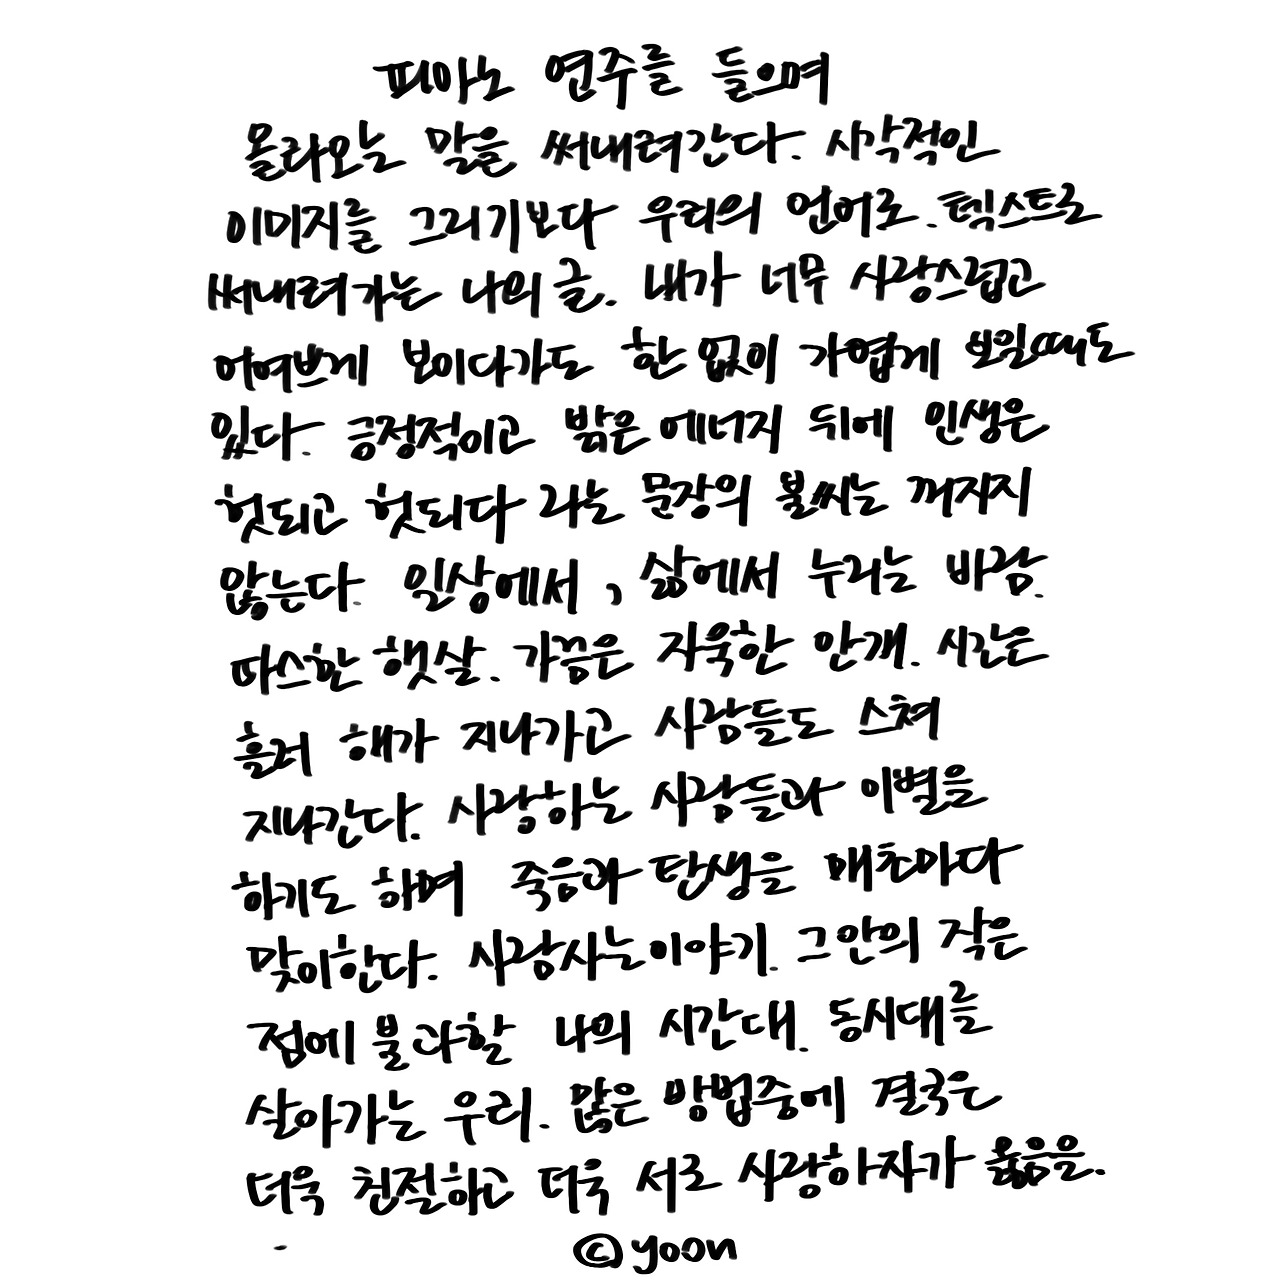 피아노 연주를 들으며
올라오는 말을 써내려간다. 시각적인
이미지를 그리기보다 우리의 언어로. 텍스트로
써내려가는 나의 글. 내가 너무 사랑스럽고
어여쁘게 보이다가도 한없이 가엽게 보일때도
있다. 긍정적이고 밝은 에너지 뒤에 인생은
헛되고 헛되다 라는 문장의 불씨는 꺼지지
않는다. 일상에서, 삶에서 누리는 바람.
따스한 햇살. 가끔은 자욱한 안개. 시간은
흘러 해가 지나가고 사람들도 스쳐
지나간다. 사랑하는 사람들과 이별을
하기도 하며 죽음과 탄생을 매초마다
맞이한다. 사람사는이야기. 그 안의 작은
점에 불과할 나의 시간대. 동시대를
살아가는 우리. 많은 방법중에 결국은
더욱 친절하고 더욱 서로 사랑하자가 옳음을.
©yoon